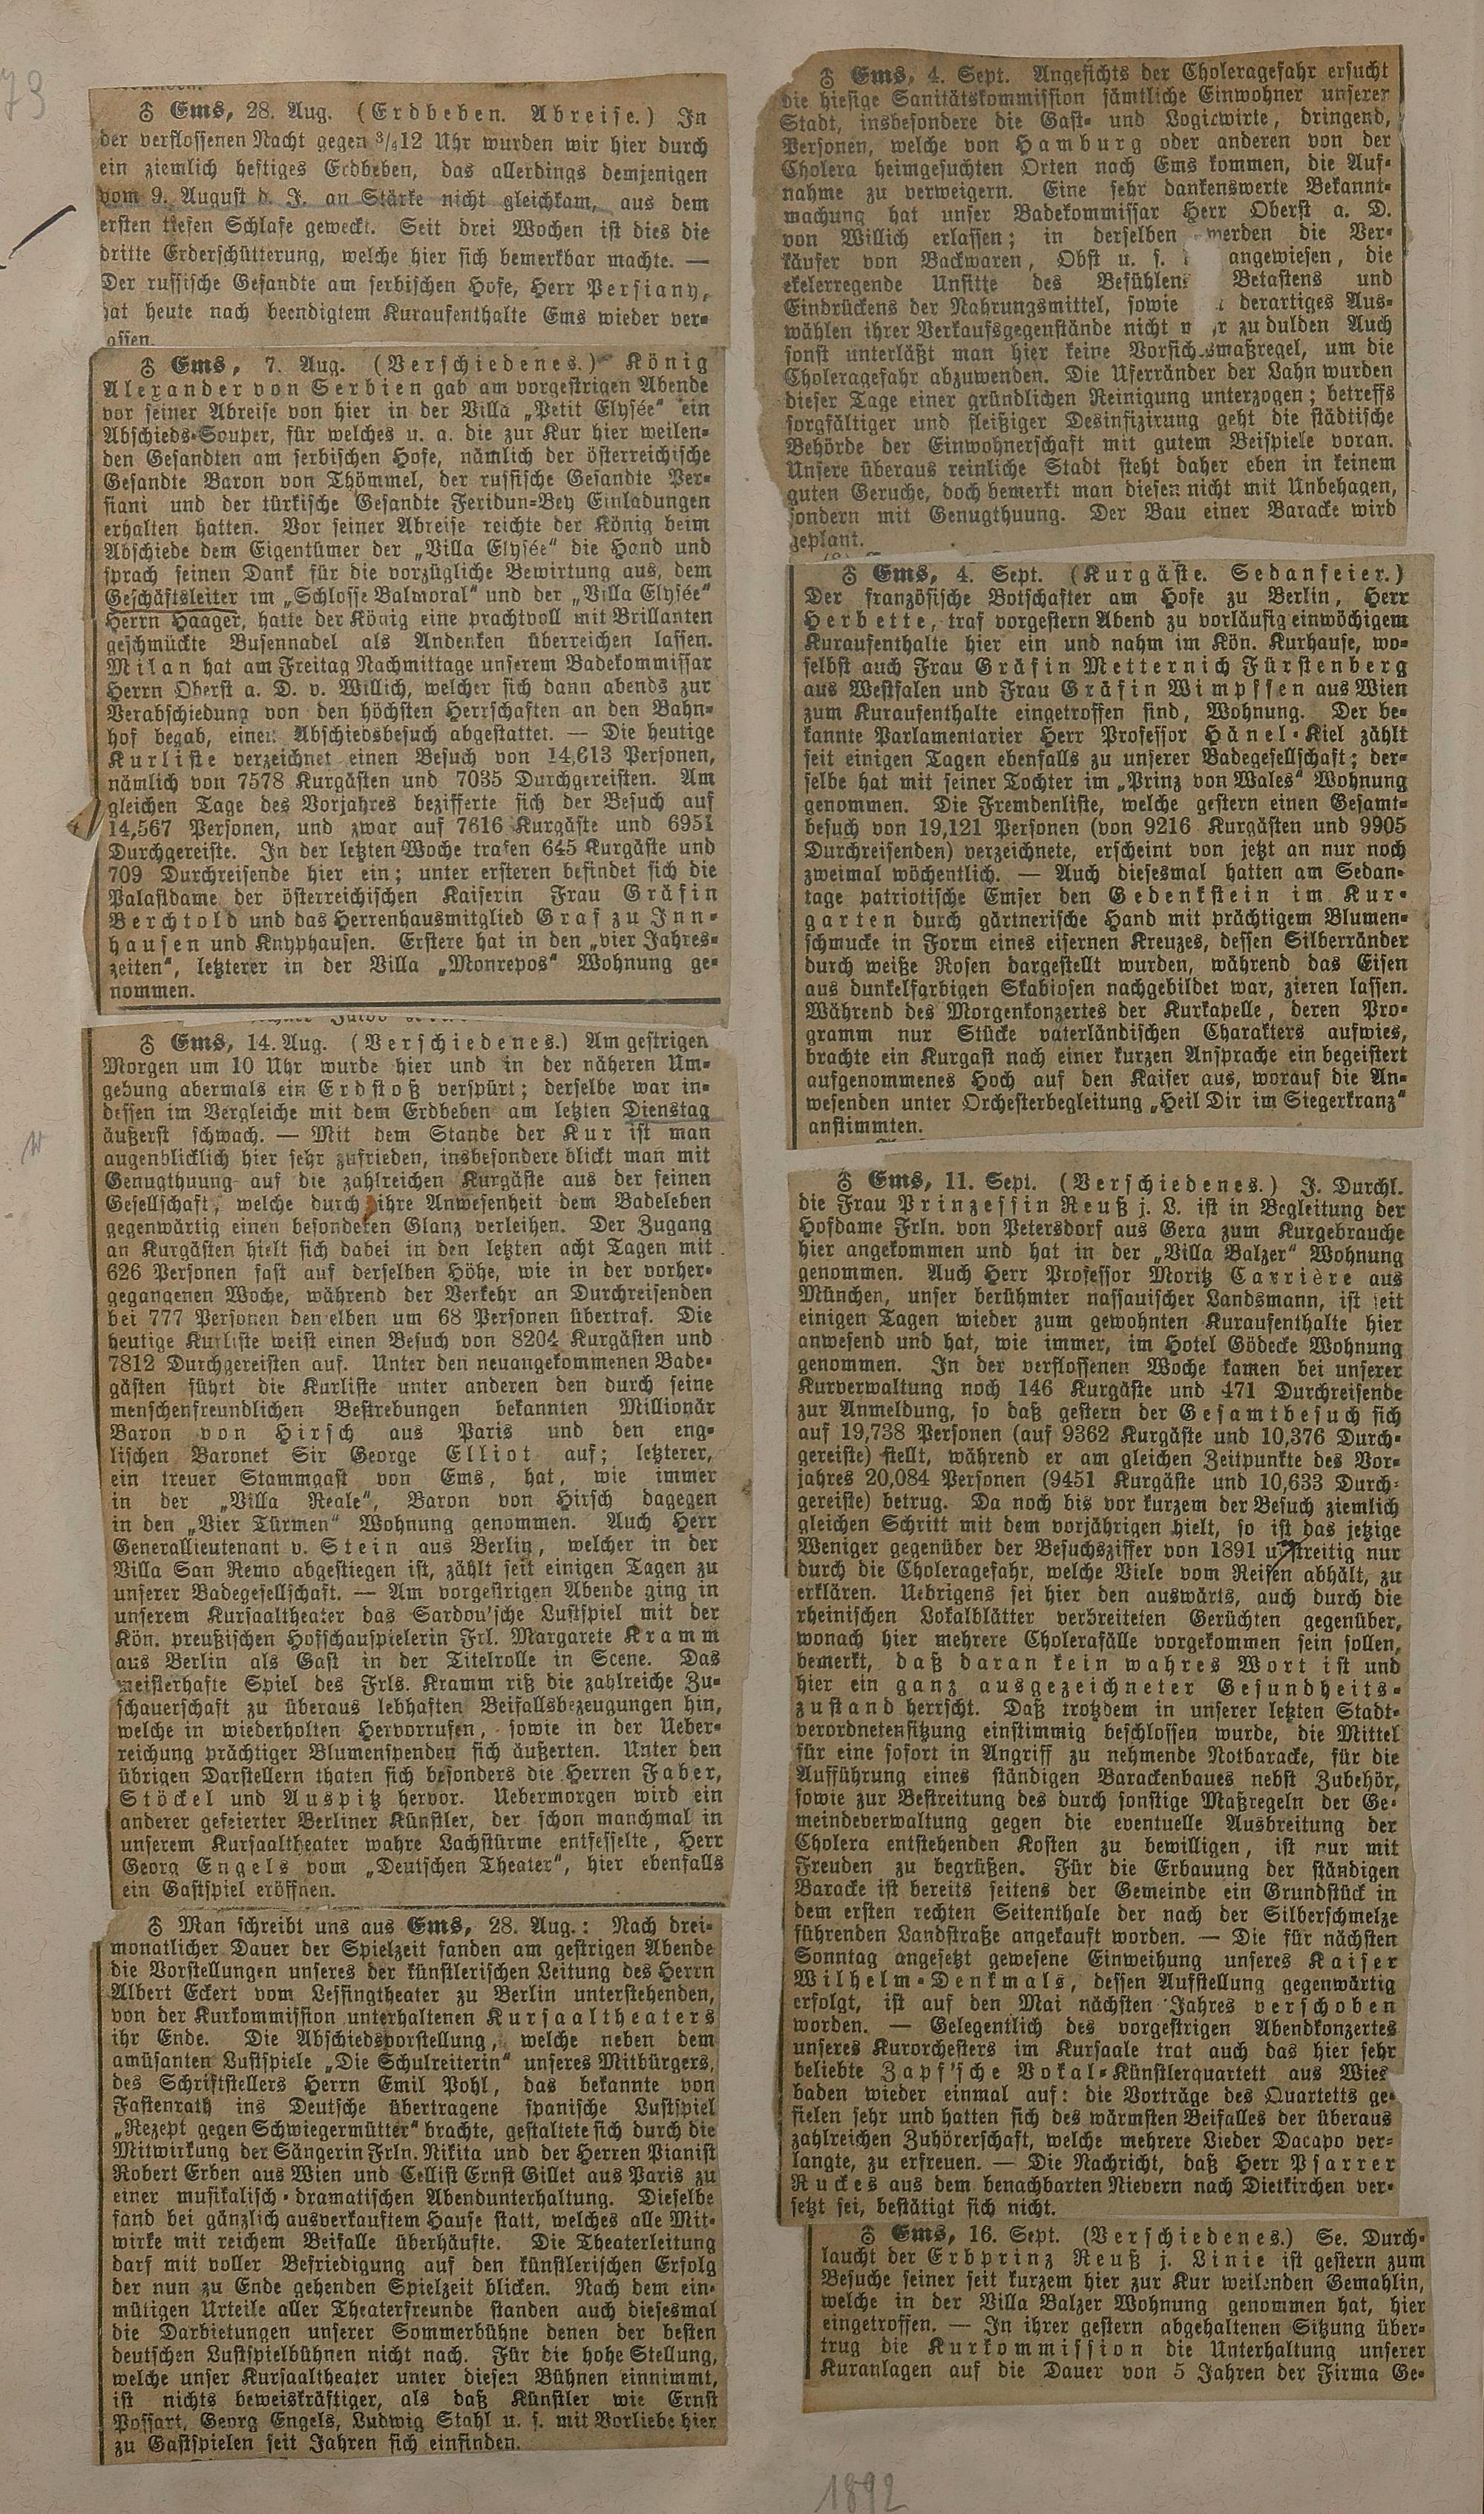 79
♁ Ems, 28. Aug. (Erdbeben. Abreise.) In
der verflossenen Nacht gegen ³/₄12 Uhr wurden wir hier durch
ein ziemlich heftiges Erdbeben, das allerdings demjenigen
vom 9. August d. J. an Stärke nicht gleichkam, aus dem
ersten tiefen Schlafe geweckt. Seit drei Wochen ist dies die
dritte Erderschütterung, welche hier sich bemerkbar machte. —
Der russische Gesandte am serbischen Hofe, Herr Persiany,
hat heute nach beendigtem Kuraufenthalte Ems wieder ver-
assen.
♁ Ems, 7. Aug. (Verschiedenes.) König
Alexander von Serbien gab am vorgestrigen Abende
vor seiner Abreise von hier in der Villa „Petit Elysée" ein
Abschieds-Souper, für welches u. a. die zur Kur hier weilen-
den Gesandten am serbischen Hofe, nämlich der österreichische
Gesandte Baron von Thömmel, der russische Gesandte Per-
siani und der türkische Gesandte Feridun-Bey Einladungen
erhalten hatten. Vor seiner Abreise reichte der König beim
Abschiede dem Eigentümer der „Villa Elysée" die Hand und
sprach seinen Dank für die vorzügliche Bewirtung aus, dem
Geschäftsleiter im „Schlosse Balmoral" und der „Villa Elysée"
Herrn Haager, hatte der König eine prachtvoll mit Brillanten
geschmückte Busennadel als Andenken überreichen lassen.
Milan hat am Freitag Nachmittage unserem Badekommissar
Herrn Oberst a. D. v. Willich, welcher sich dann abends zur
Verabschiedung von den höchsten Herrschaften an den Bahn-
hof begab, einen Abschiedsbesuch abgestattet. — Die heutige
Kurliste verzeichnet einen Besuch von 14,613 Personen,
nämlich von 7578 Kurgästen und 7035 Durchgereisten. Am
gleichen Tage des Vorjahres bezifferte sich der Besuch auf
14,567 Personen, und zwar auf 7616 Kurgäste und 6951
Durchgereiste. In der letzten Woche trafen 645 Kurgäste und
709 Durchreisende hier ein; unter ersteren befindet sich die
Palastdame der österreichischen Kaiserin Frau Gräfin
Berchtold und das Herrenhausmitglied Graf zu Inn-
hausen und Knyphausen. Erstere hat in den „vier Jahres-
zeiten", letzterer in der Villa „Monrepos" Wohnung ge-
nommen.
♁ Ems, 14. Aug. (Verschiedenes.) Am gestrigen
Morgen um 10 Uhr wurde hier und in der näheren Um-
gebung abermals ein Erdstoß verspürt; derselbe war in-
dessen im Vergleiche mit dem Erdbeben am letzten Dienstag
äußerst schwach. — Mit dem Stande der Kur ist man
augenblicklich hier sehr zufrieden, insbesondere blickt man mit
Genugthuung auf die zahlreichen Kurgäste aus der feinen
Gesellschaft, welche durch ihre Anwesenheit dem Badeleben
gegenwärtig einen besonderen Glanz verleihen. Der Zugang
an Kurgästen hielt sich dabei in den letzten acht Tagen mit
626 Personen fast auf derselben Höhe, wie in der vorher-
gegangenen Woche, während der Verkehr an Durchreisenden
bei 777 Personen denselben um 68 Personen übertraf. Die
heutige Kurliste weist einen Besuch von 8204 Kurgästen und
7812 Durchgereisten auf. Unter den neuangekommenen Bade-
gästen führt die Kurliste unter anderen den durch seine
menschenfreundlichen Bestrebungen bekannten Millionär
Baron von Hirsch aus Paris und den eng-
lischen Baronet Sir George Elliot auf; letzterer,
ein treuer Stammgast von Ems, hat, wie immer
in der „Villa Reale", Baron von Hirsch dagegen
in den „Vier Türmen" Wohnung genommen. Auch Herr
Generallieutenant v. Stein aus Berlin, welcher in der
Villa San Remo abgestiegen ist, zählt seit einigen Tagen zu
unserer Badegesellschaft. — Am vorgestrigen Abende ging in
unserem Kursaaltheater das Sardou'sche Lustspiel mit der
Kön. preußischen Hofschauspielerin Frl. Margarete Kramm
aus Berlin als Gast in der Titelrolle in Scene. Das
meisterhafte Spiel des Frls. Kramm riß die zahlreiche Zu-
schauerschaft zu überaus lebhaften Beifallsbezeugungen hin,
welche in wiederholten Hervorrufen, sowie in der Ueber-
reichung prächtiger Blumenspenden sich äußerten. Unter den
übrigen Darstellern thaten sich besonders die Herren Faber,
Stöckel und Auspitz hervor. Uebermorgen wird ein
anderer gefeierter Berliner Künstler, der schon manchmal in
unserem Kursaaltheater wahre Lachstürme entfesselte, Herr
Georg Engels vom „Deutschen Theater", hier ebenfalls
ein Gastspiel eröffnen.
♁ Man schreibt uns aus Ems, 28. Aug.: Nach drei-
monatlicher Dauer der Spielzeit fanden am gestrigen Abende
die Vorstellungen unseres der künstlerischen Leitung des Herrn
Albert Eckert vom Lessingtheater zu Berlin unterstehenden,
von der Kurkommission unterhaltenen Kursaaltheaters
ihr Ende. Die Abschiedsvorstellung, welche neben dem
amüsanten Lustspiele „Die Schulreiterin" unseres Mitbürgers,
des Schriftstellers Herrn Emil Pohl, das bekannte von
Fastenrath ins Deutsche übertragene spanische Lustspiel
„Rezept gegen Schwiegermütter" brachte, gestaltete sich durch die
Mitwirkung der Sängerin Frln. Nikita und der Herren Pianist
Robert Erben aus Wien und Cellist Ernst Gillet aus Paris zu
einer musikalisch-dramatischen Abendunterhaltung. Dieselbe
fand bei gänzlich ausverkauftem Hause statt, welches alle Mit-
wirke mit reichem Beifalle überhäufte. Die Theaterleitung
darf mit voller Befriedigung auf den künstlerischen Erfolg
der nun zu Ende gehenden Spielzeit blicken. Nach dem ein-
mütigen Urteile aller Theaterfreunde standen auch diesesmal
die Darbietungen unserer Sommerbühne denen der besten
deutschen Lustspielbühnen nicht nach. Für die hohe Stellung,
welche unser Kursaaltheater unter diesen Bühnen einnimmt,
ist nichts beweiskräftiger, als daß Künstler wie Ernst
Possart, Georg Engels, Ludwig Stahl u. s. mit Vorliebe hier
zu Gastspielen seit Jahren sich einfinden.
♁ Ems, 4. Sept. Angesichts der Choleragefahr ersucht
die hiesige Sanitätskommission sämtliche Einwohner unserer
Stadt, insbesondere die Gast- und Logiewirte, dringend,
Personen, welche von Hamburg oder anderen von der
Cholera heimgesuchten Orten nach Ems kommen, die Auf-
nahme zu verweigern. Eine sehr dankenswerte Bekannt-
machung hat unser Badekommissar Herr Oberst a. D.
von Willich erlassen; in derselben werden die Ver-
käufer von Backwaren, Obst u. s. angewiesen, die
ekelerregende Unsitte des Befühlens Betastens und
Eindrückens der Nahrungsmittel, sowie derartiges Aus-
wählen ihrer Verkaufsgegenstände nicht zu dulden Auch
sonst unterläßt man hier keine Vorsichtsmaßregel, um die
Choleragefahr abzuwenden. Die Uferränder der Lahn wurden
dieser Tage einer gründlichen Reinigung unterzogen; betreffs
sorgfältiger und fleißiger Desinfizirung geht die städtische
Behörde der Einwohnerschaft mit gutem Beispiele voran.
Unsere überaus reinliche Stadt steht daher eben in keinem
guten Geruche, doch bemerkt man diesen nicht mit Unbehagen,
sondern mit Genugthuung. Der Bau einer Baracke wird
geplant.
♁ Ems, 4. Sept. (Kurgäste. Sedanfeier.)
Der französische Botschafter am Hofe zu Berlin, Herr
Herbette, traf vorgestern Abend zu vorläufig einwöchigem
Kuraufenthalte hier ein und nahm im Kön. Kurhause, wo-
selbst auch Frau Gräfin Metternich Fürstenberg
aus Westfalen und Frau Gräfin Wimpffen aus Wien
zum Kuraufenthalte eingetroffen sind, Wohnung. Der be-
kannte Parlamentarier Herr Professor Hänel-Kiel zählt
seit einigen Tagen ebenfalls zu unserer Badegesellschaft; der-
selbe hat mit seiner Tochter im „Prinz von Wales" Wohnung
genommen. Die Fremdenliste, welche gestern einen Gesamt-
besuch von 19,121 Personen (von 9216 Kurgästen und 9905
Durchreisenden) verzeichnete, erscheint von jetzt an nur noch
zweimal wöchentlich. — Auch diesesmal hatten am Sedan-
tage patriotische Emser den Gedenkstein im Kur-
garten durch gärtnerische Hand mit prächtigem Blumen-
schmucke in Form eines eisernen Kreuzes, dessen Silberränder
durch weiße Rosen dargestellt wurden, während das Eisen
aus dunkelfarbigen Skabiosen nachgebildet war, zieren lassen.
Während des Morgenkonzertes der Kurkapelle, deren Pro-
gramm nur Stücke vaterländischen Charakters aufwies,
brachte ein Kurgast nach einer kurzen Ansprache ein begeistert
aufgenommenes Hoch auf den Kaiser aus, worauf die An-
wesenden unter Orchesterbegleitung „Heil Dir im Siegerkranz"
anstimmten.
♁ Ems, 11. Sept. (Verschiedenes.) J. Durchl.
die Frau Prinzessin Reuß j. L. ist in Begleitung der
Hofdame Frln. von Petersdorf aus Gera zum Kurgebrauche
hier angekommen und hat in der „Villa Balzer" Wohnung
genommen. Auch Herr Professor Moritz Carrière aus
München, unser berühmter nassauischer Landsmann, ist seit
einigen Tagen wieder zum gewohnten Kuraufenthalte hier
anwesend und hat, wie immer, im Hotel Gödecke Wohnung
genommen. In der verflossenen Woche kamen bei unserer
Kurverwaltung noch 146 Kurgäste und 471 Durchreisende
zur Anmeldung, so daß gestern der Gesamtbesuch sich
auf 19,738 Personen (auf 9362 Kurgäste und 10,376 Durch-
gereiste) stellt, während er am gleichen Zeitpunkte des Vor-
jahres 20,084 Personen (9451 Kurgäste und 10,633 Durch-
gereiste) betrug. Da noch bis vor kurzem der Besuch ziemlich
gleichen Schritt mit dem vorjährigen hielt, so ist das jetzige
Weniger gegenüber der Besuchsziffer von 1891 unstreitig nur
durch die Choleragefahr, welche Viele vom Reisen abhält, zu
erklären. Uebrigens sei hier den auswärts, auch durch die
rheinischen Lokalblätter verbreiteten Gerüchten gegenüber,
wonach hier mehrere Cholerafälle vorgekommen sein sollen,
bemerkt, daß daran kein wahres Wort ist und
hier ein ganz ausgezeichneter Gesundheits-
zustand herrscht. Daß trotzdem in unserer letzten Stadt-
verordnetensitzung einstimmig beschlossen wurde, die Mittel
für eine sofort in Angriff zu nehmende Notbaracke, für die
Aufführung eines ständigen Barackenbaues nebst Zubehör,
sowie zur Bestreitung des durch sonstige Maßregeln der Ge-
meindeverwaltung gegen die eventuelle Ausbreitung der
Cholera entstehenden Kosten zu bewilligen, ist nur mit
Freuden zu begrüßen. Für die Erbauung der ständigen
Baracke ist bereits seitens der Gemeinde ein Grundstück in
dem ersten rechten Seitenthale der nach der Silberschmelze
führenden Landstraße angekauft worden. — Die für nächsten
Sonntag angesetzt gewesene Einweihung unseres Kaiser
Wilhelm-Denkmals, dessen Aufstellung gegenwärtig
erfolgt, ist auf den Mai nächsten Jahres verschoben
worden. — Gelegentlich des vorgestrigen Abendkonzertes
unseres Kurorchesters im Kursaale trat auch das hier sehr
beliebte Zapf'sche Vokal-Künstlerquartett aus Wies
baden wieder einmal auf: die Vorträge des Quartetts ge-
fielen sehr und hatten sich des wärmsten Beifalles der überaus
zahlreichen Zuhörerschaft, welche mehrere Lieder Dacapo ver-
langte, zu erfreuen. — Die Nachricht, daß Herr Pfarrer
Ruckes aus dem benachbarten Nievern nach Dietkirchen ver-
setzt sei, bestätigt sich nicht.
♁ Ems, 16. Sept. (Verschiedenes.) Se. Durch-
laucht der Erbprinz Reuß j. Linie ist gestern zum
Besuche seiner seit kurzem hier zur Kur weilenden Gemahlin,
welche in der Villa Balzer Wohnung genommen hat, hier
eingetroffen. — In ihrer gestern abgehaltenen Sitzung über-
trug die Kurkommission die Unterhaltung unserer
Kuranlagen auf die Dauer von 5 Jahren der Firma Ge-
1892